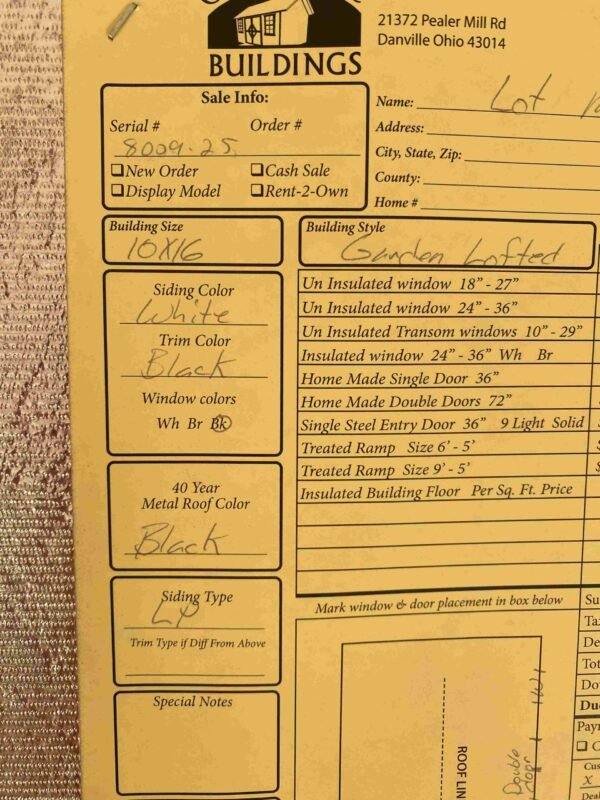 21372 Pealer Mill Rd
Danville Ohio 43014
BUILDINGS
Sale Info:
Serial # Order #
8009-25
❑New Order ❑Cash Sale
❑Display Model ❑Rent-2-Own
Name: Lot
Address:
City, State, Zip:
County:
Home #
Building Size
10X16
Building Style
Garden Lofted
Siding Color
White
Trim Color
Black
Window colors
Wh Br Bk
40 Year
Metal Roof Color
Black
Siding Type
LP
Trim Type if Diff From Above
Special Notes
Un Insulated window 18" - 27"
Un Insulated window 24" - 36"
Un Insulated Transom windows 10" - 29"
Insulated window 24" - 36" Wh Br
Home Made Single Door 36"
Home Made Double Doors 72"
Single Steel Entry Door 36" 9 Light Solid
Treated Ramp Size 6' - 5'
Treated Ramp Size 9' - 5'
Insulated Building Floor Per Sq. Ft. Price
Mark window & door placement in box below
ROOF LIN
Double
Door
Su
Tax
De
Tot
Do
Du
Pay
❑ C
Cus
X
Deal